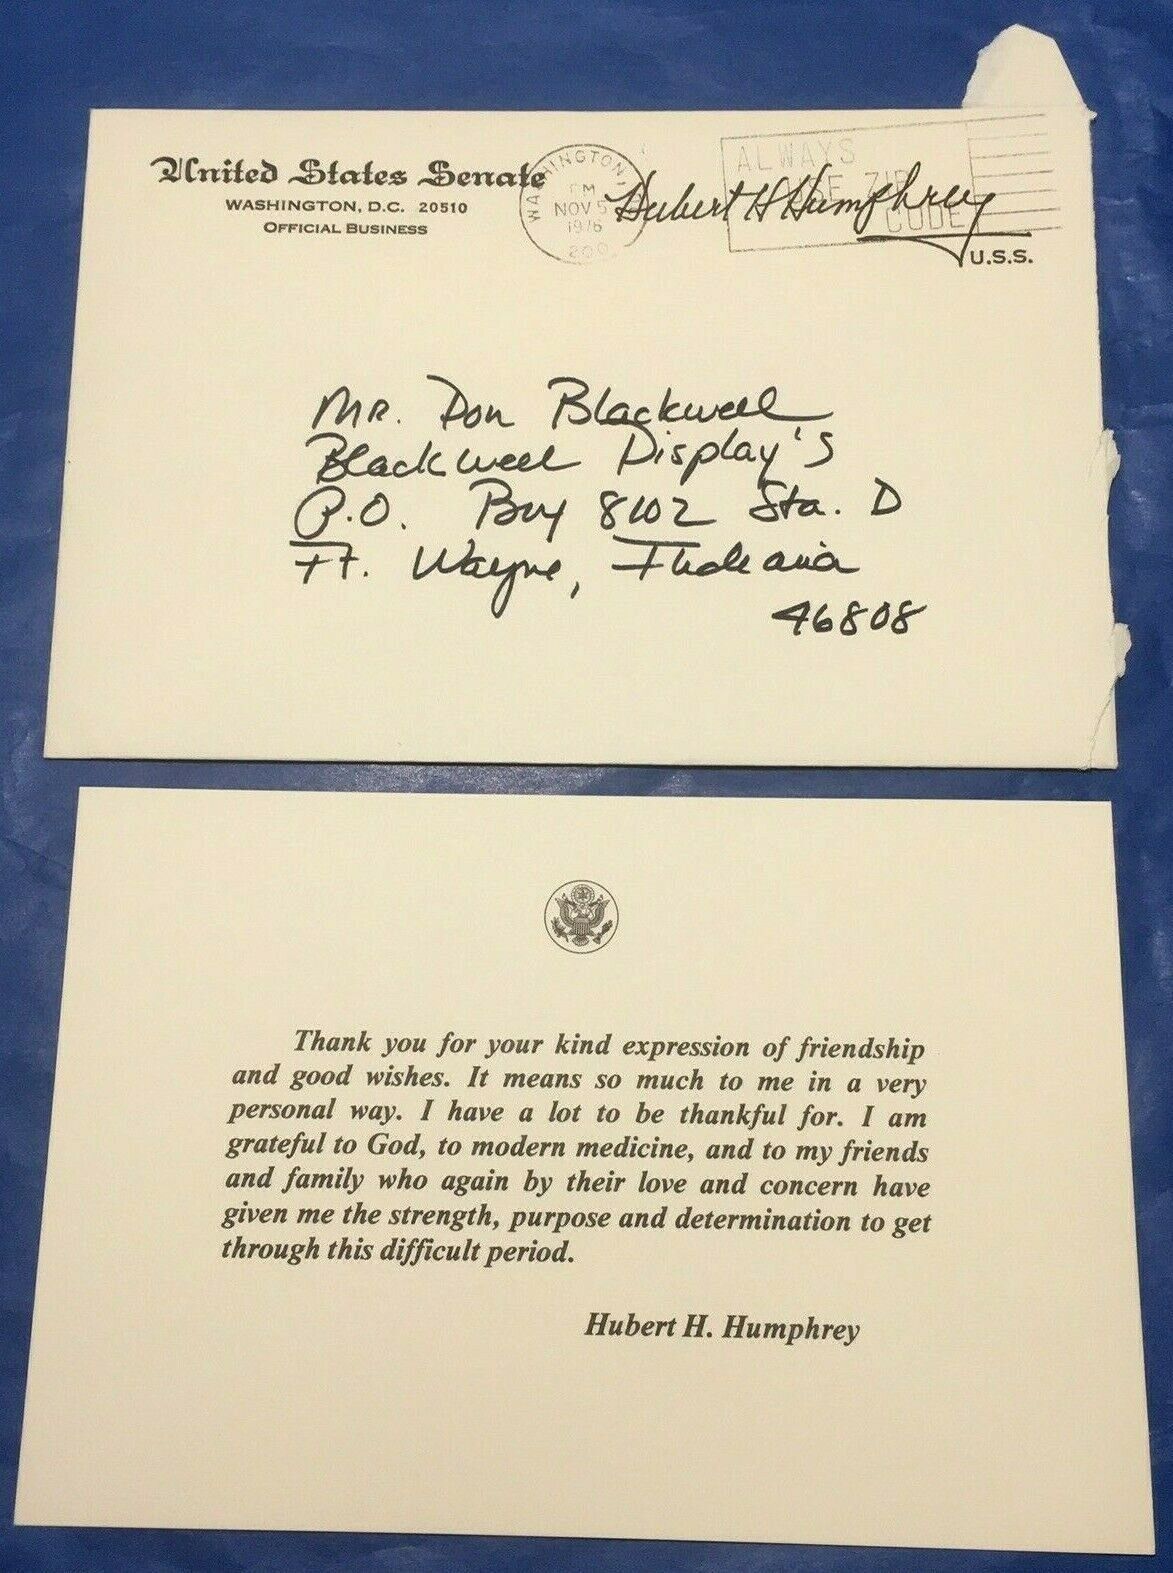 United States Senate
WASHINGTON, D.C. 20510
OFFICIAL BUSINESS
WASHINGTON
PM
NOV 5
1976
ALWAYS
USE ZIP
CODE
Hubert H Humphrey
U.S.S.
Mr. Don Blackwell
Blackwell Display's
P.O. Box 8102 Sta. D
Ft. Wayne, Indeania
46808
Thank you for your kind expression of friendship
and good wishes. It means so much to me in a very
personal way. I have a lot to be thankful for. I am
grateful to God, to modern medicine, and to my friends
and family who again by their love and concern have
given me the strength, purpose and determination to get
through this difficult period.
Hubert H. Humphrey